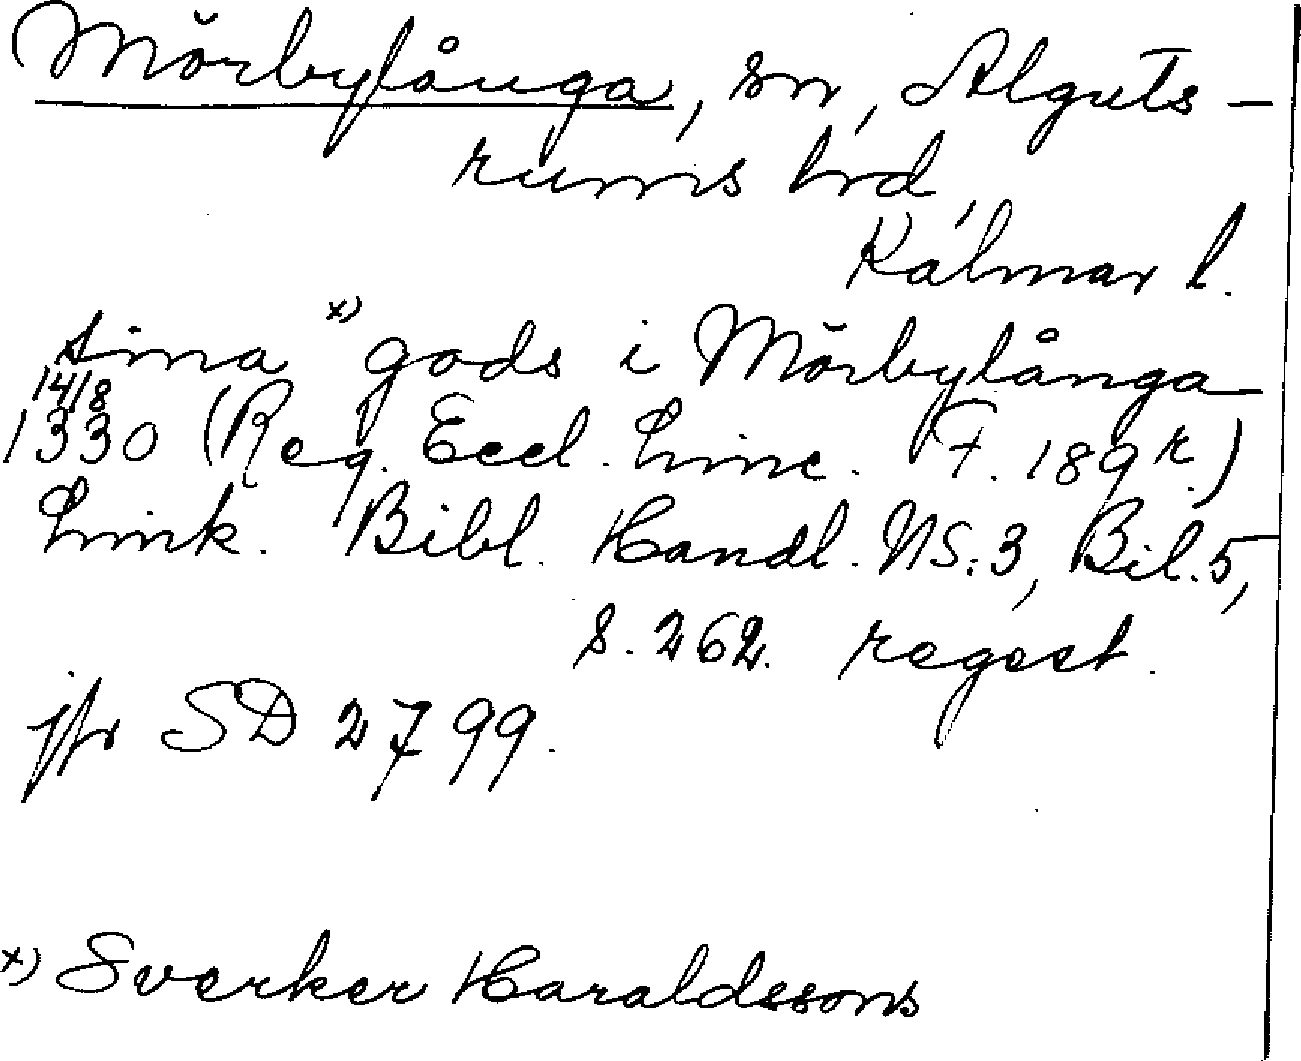 Mörbylånga, sn, Alguts-
rums hrd,
Kalmar l.
sina x) gods i Mörbylånga
14/8
1330 (Reg. Eccl. Linc. F. 189 r.)
Link. Bibl. Handl. NS:3, Bil. 5,
s. 262. regest.
jfr SD 2799.
x) Sverker Haraldssons